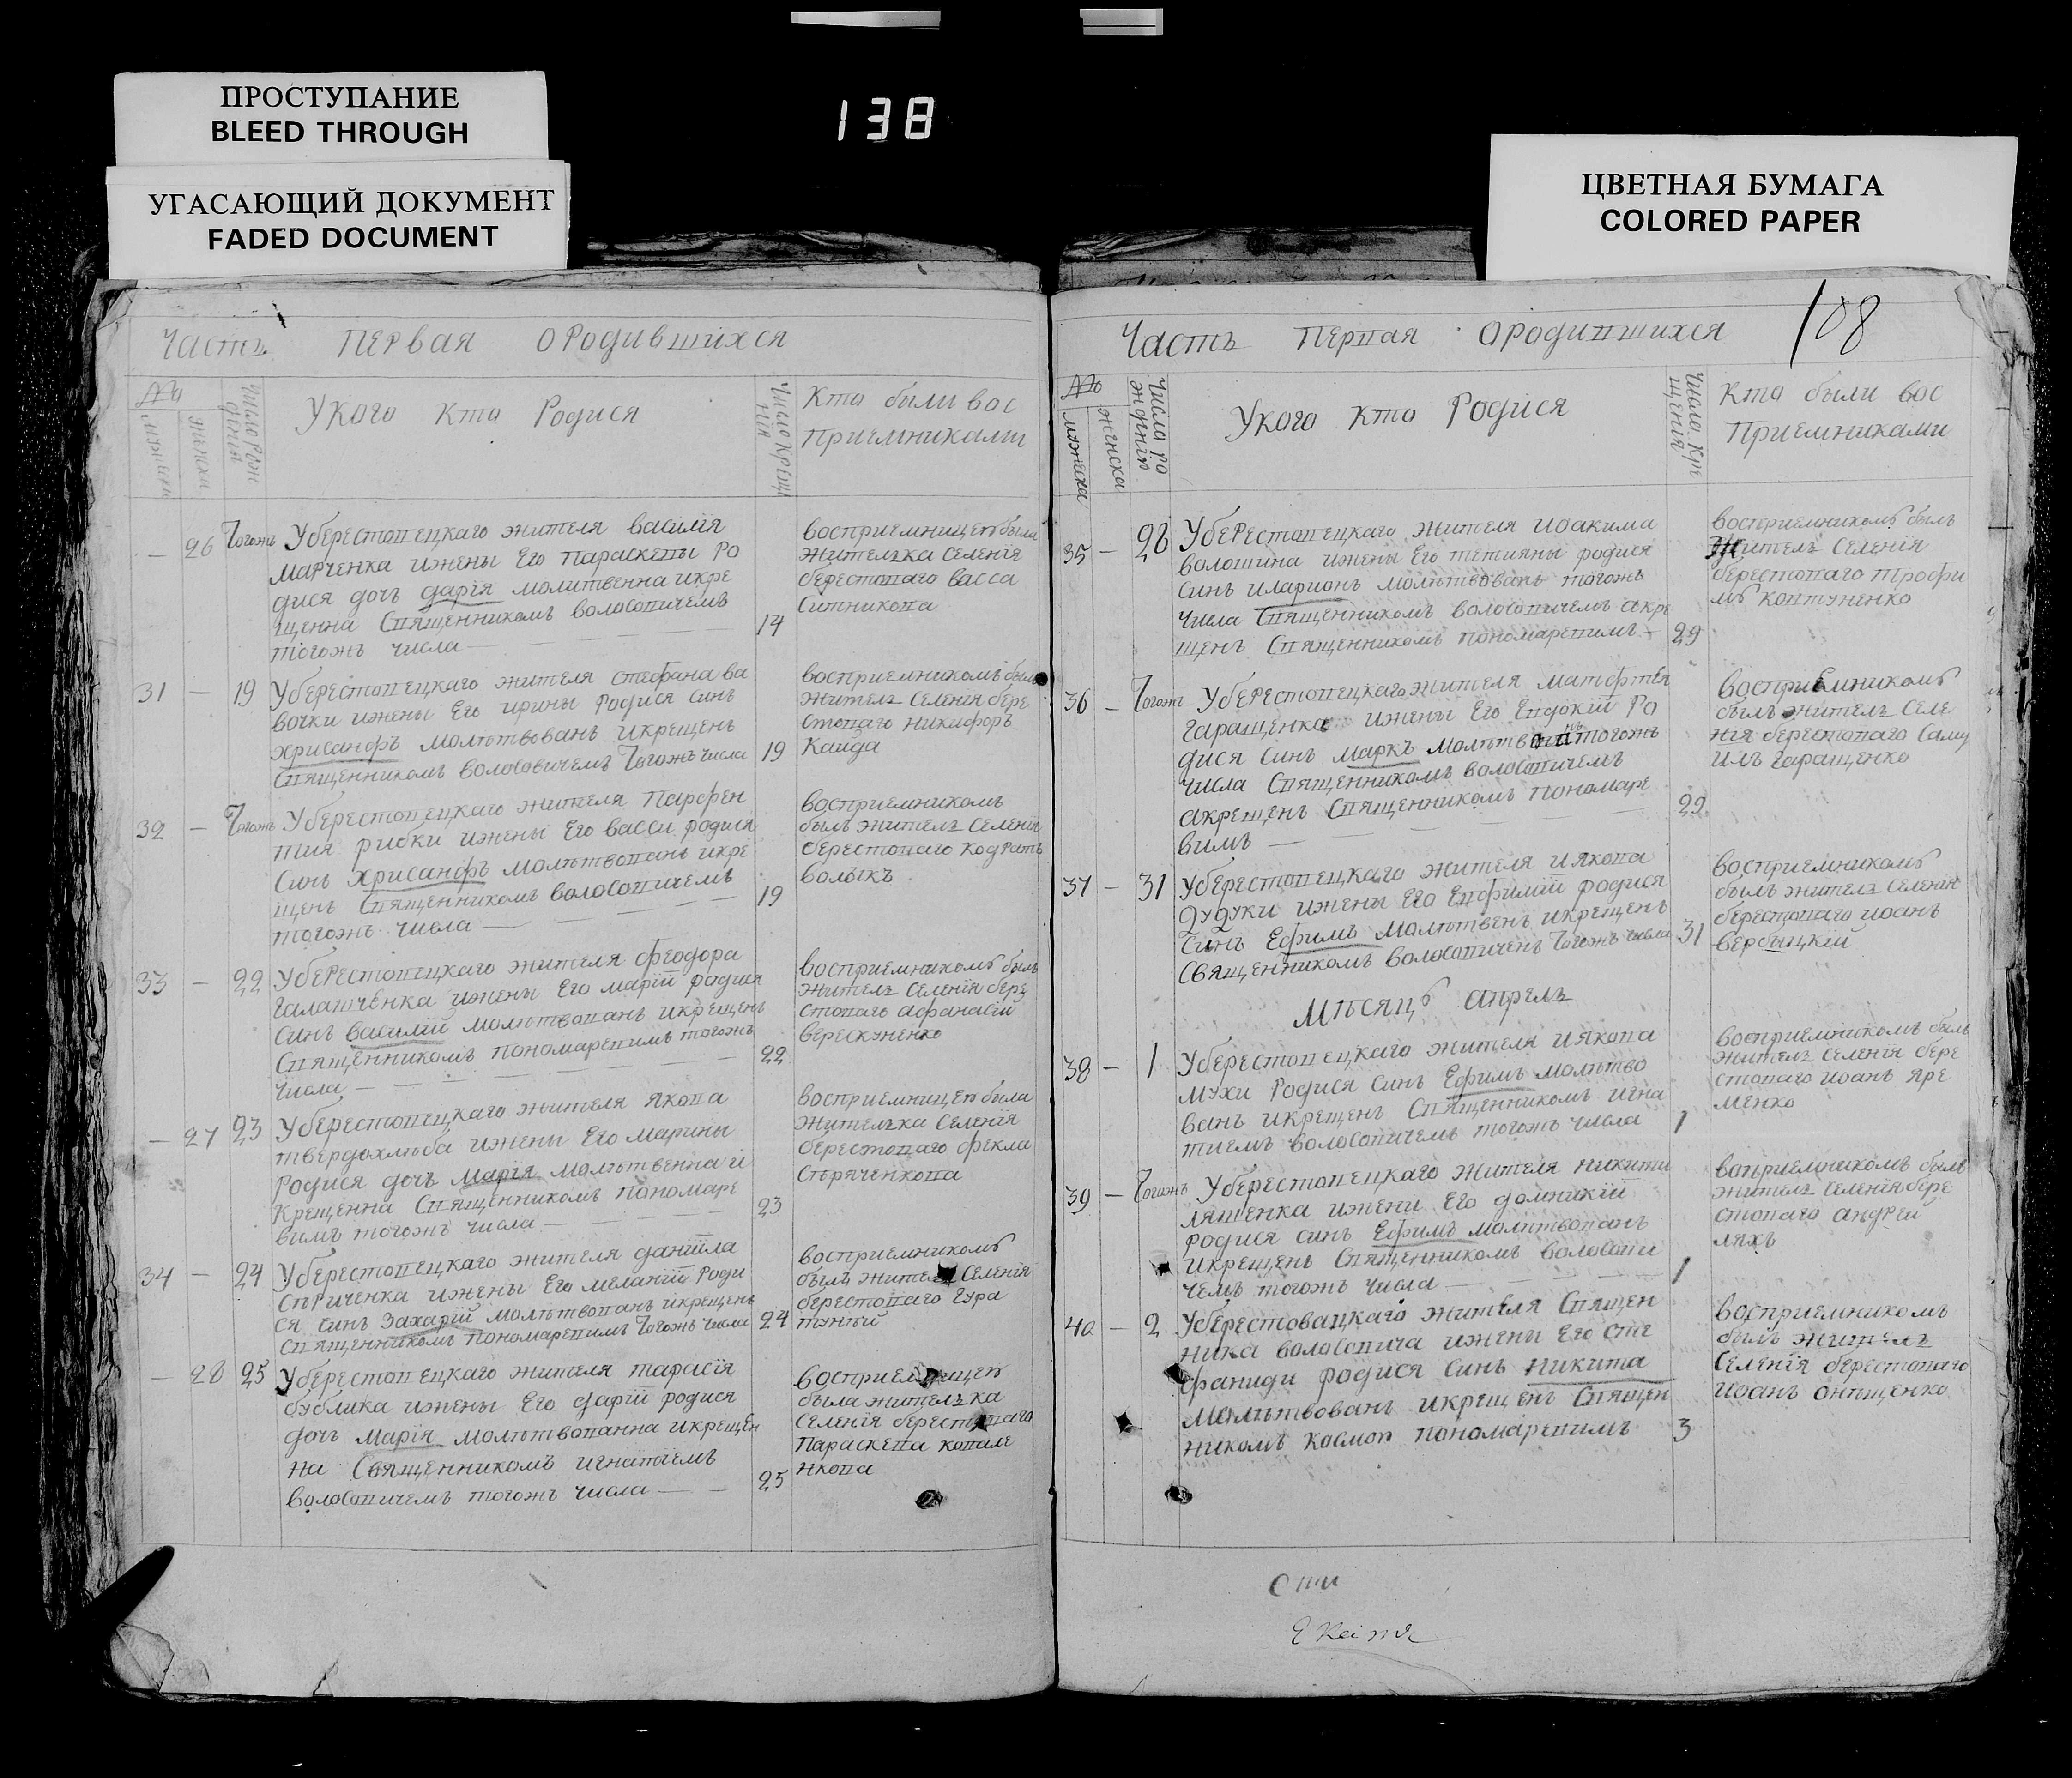 ПРОСТУПАНИЕ
BLEED THROUGH
УГАСАЮЩИЙ ДОКУМЕНТ
FADED DOCUMENT
138
ЦВЕТНАЯ БУМАГА
COLORED PAPER
Часть Первая ородившихся
№
мужеска
женска
Число Рож
дения
Укого Кто Родися
Число Креще
нія
Кто били вос
приемниками
— 26 Тогожъ Уберестовецкаго жителя василія
Марченка ижены Его параскевы Ро
дися дочь дарія молитвенна икре
щенна Священникомъ волосовичемъ
тогожъ числа — 14
восприемницею была
жителька Селенія
берестоваго васса
Ситникова
31 — 19 Уберестовецкаго жителя стефана ва
вочки ижены Его ирины Родися Синъ
Хрисанфъ молитвованъ икрещенъ
Священникомъ волосовичемъ Тогожъ числа 19
восприемникомъ былъ
житель Селенія бере
стоваго никифоръ
Кайда
32 — Тогожъ Уберестовецкаго жителя Парфен
тия рибки ижены Его васси родися
Синъ Хрисанфъ молитвованъ икре
щенъ Священникомъ волосовичемъ
тогожъ числа — 19
восприемникомъ
былъ житель Селенія
берестоваго кодратъ
волыкъ
33 — 22 Уберестовецкаго жителя феодора
Галатченка ижены Его маріи родися
Синъ василій молитвованъ икрещенъ
Священникомъ пономаревимъ тогожъ
числа — 22
восприемникомъ былъ
житель Селенія бере
стоваго афанасій
верескуненко
— 27 23 Уберестовецкаго жителя якова
твердохлеба ижены Его марины
Родися дочь Марія молитвенна и
Крещенна Священникомъ пономаре
вимъ тогожъ числа — 23
восприемницею была
жителька Селенія
берестоваго фекла
34 — 24 Уберестовецкаго жителя даніила
ижены Его меланіи Роди
ся Синъ Захарій молитвованъ икрещенъ
Священникомъ пономаревимъ Тогожъ числа 24
восприемникомъ
былъ житель Селенія
берестоваго Гура
— 28 25 Уберестовецкаго жителя тарасія
бублика ижены Его даріи родися
дочь Марія молитвованна икрещен
на Священникомъ игнатіемъ
волосовичемъ тогожъ числа — 25
восприемницею
была жителька
Селенія берестоваго
Параскева ковале
нкова
Часть Первая ородившихся 108
№
мужеска
женска
Числа ро
жденія
Укого кто Родися
Числа Кре
щенія
Кто были вос
Приемниками
35 — 28 Уберестовецкаго жителя иоакима
волошина ижены Его тетияны родися
синъ иларионъ молитвованъ тогожъ
числа Священникомъ волосовичемъ акре
щенъ Священникомъ пономаревимъ — 29
восприемникомъ былъ
житель Селенія
берестоваго трофи
мъ ковтуненко
36 — Тогожъ Уберестовецкаго жителя матфея
Гаращенка ижены Его Евдокіи Ро
дися Синъ Маркъ молитвованъ тогожъ
числа Священникомъ волосовичемъ
акрещенъ Священникомъ пономаре
вимъ — 29
восприемникомъ
былъ житель Селе
нія берестоваго Саму
илъ Гаращенко
37 — 31 Уберестовецкаго жителя иякова
дудуки ижены Его Евфиміи родися
Синъ Ефимъ молитвенъ икрещенъ
Священникомъ волосовичемъ Тогожъ числа 31
восприемникомъ
былъ житель Селенія
берестоваго иоанъ
вербыцкій
Месяцъ апрель
38 — 1 Уберестовецкаго жителя иякова
Мухи Родися Синъ Ефимъ молитво
ванъ икрещенъ Священникомъ игна
тиемъ волосовичемъ тогожъ числа 1
восприемникомъ былъ
житель Селенія бере
стоваго иоанъ Яре
менко
39 — Тогожъ Уберестовецкаго жителя никити
ляшенка ижени Его домникіи
родися синъ Ефимъ молитвованъ
икрещенъ Священникомъ волосови
чемъ тогожъ числа — 1
воприемникомъ былъ
житель Селенія бере
стоваго андрей
ляхъ
40 — 2 Уберестовацкаго жителя Священ
ника волосовича ижены Его сте
фаниди родися синъ никита
молитвованъ икрещенъ Священ
никомъ Космою пономаревимъ 3
восприемникомъ
былъ житель
Селенія берестоваго
иоанъ онищенко